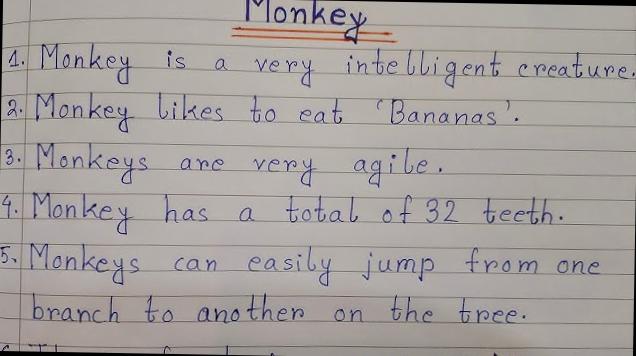 Monkey
1. Monkey is a very intelligent creature.
2. Monkey likes to eat 'Bananas'.
3. Monkeys are very agile.
4. Monkey has a total of 32 teeth.
5. Monkeys can easily jump from one
branch to another on the tree.